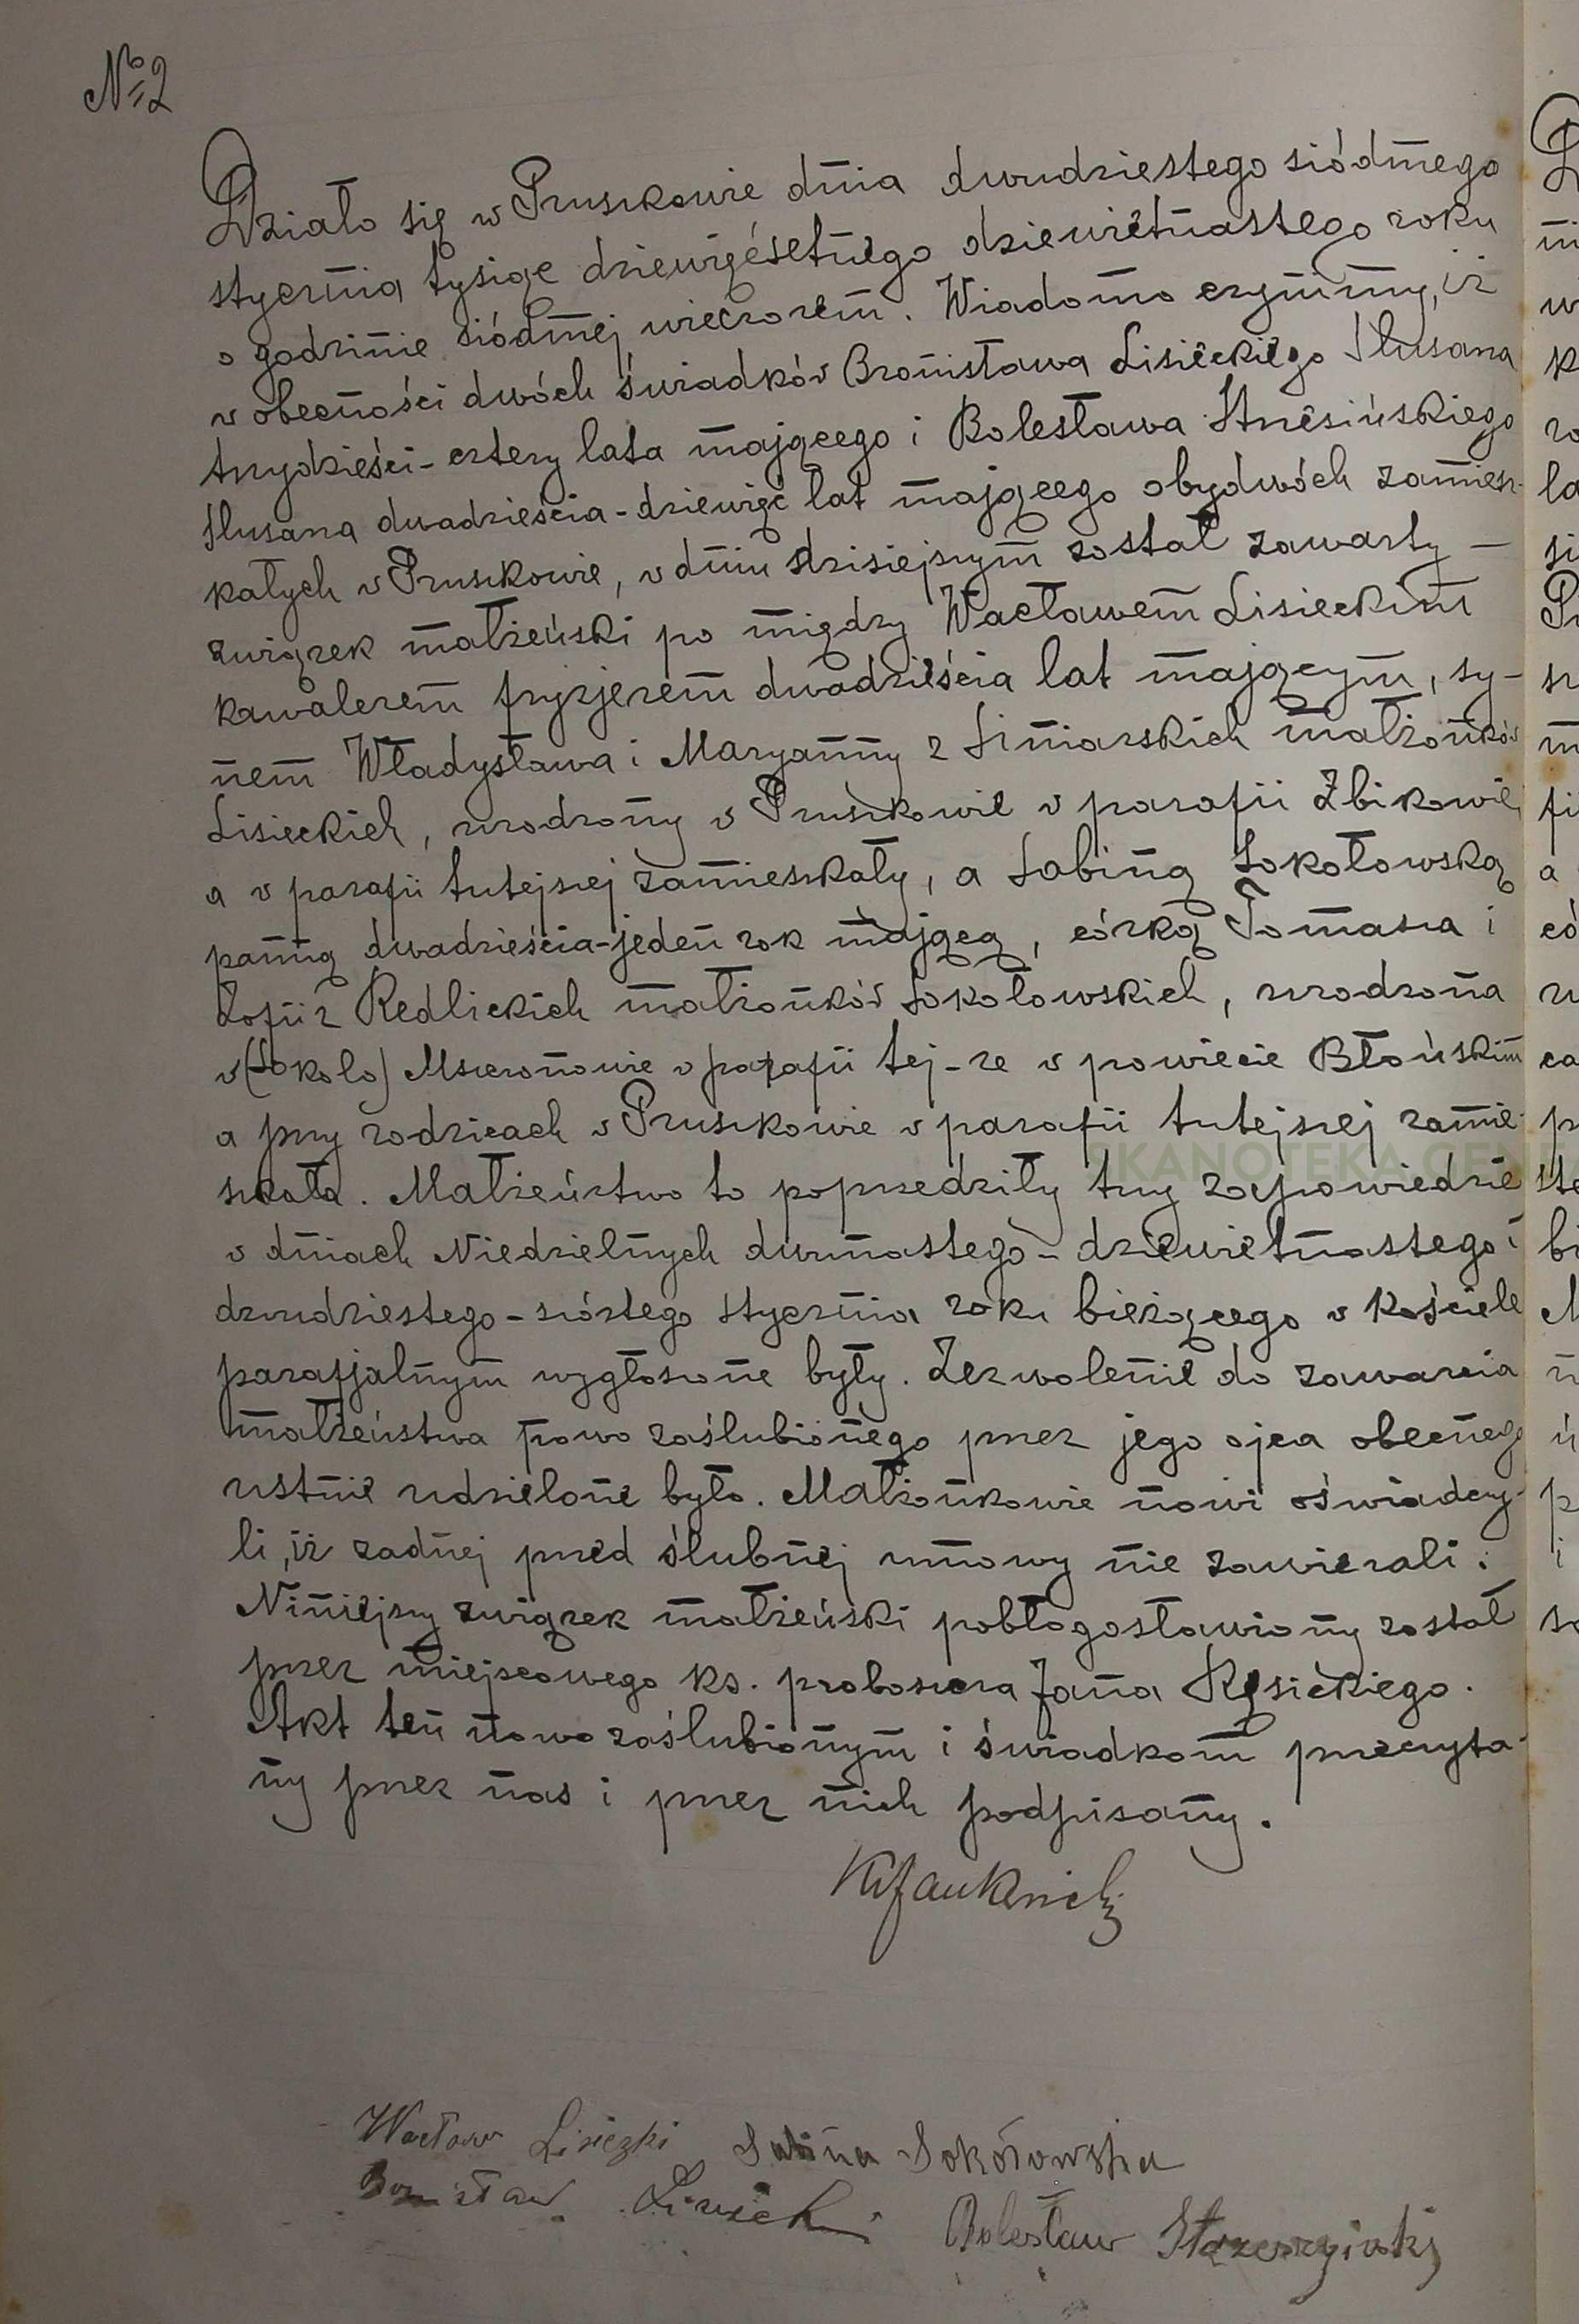 № 2
Działo się w Pruszkowie dnia dwudziestego siódmego
stycznia tysiąc dziewięćsetnego dziewiętnastego roku
o godzinie siódmej wieczorem. Wiadomo czynimy, iż
w obecności dwóch świadków Bronisława Lisieckiego ślusarza
trzydzieści-cztery lata mającego i Bolesława
ślusarza dwadzieścia-dziewięć lat mającego obydwóch zamiesz-
kałych w Pruszkowie, w dniu dzisiejszym został zawarty —
związek małżeński po między Wacławem Lisieckim
kawalerem fryzjerem dwadzieścia lat mającym, sy-
nem Władysława i Maryanny z Siniarskich małżonków
Lisieckich, urodzony w Pruszkowie w parafii Żbikowie,
a w parafii tutejszej zamieszkały, a Sabiną Sokołowską
panną dwadzieścia-jeden rok mającą, córką Tomasza i
Zofii z Redlickich małżonków Sokołowskich, urodzona
w (Sokolo) Mszczonowie w parafii tej-że w powiecie Błońskim
a przy rodzicach w Pruszkowie w parafii tutejszej zamie-
szkała. Małżeństwo to poprzedziły trzy zapowiedzie
w dniach Niedzielnych dwunastego - dziewiętnastego i
dwudziestego-szóstego stycznia roku bieżącego w kościele
parafjalnym wygłoszone były. Zezwolenie do zawarcia
małżeństwa nowo zaślubionego przez jego ojca obecnego
ustnie udzielone było. Małżonkowie nowi oświadczy-
li, iż żadnej przed ślubnej umowy nie zawierali.
Niniejszy związek małżeński pobłogosławiony został
przez miejscowego ks. proboszcza Jana Kęsickiego.
Akt ten nowo zaślubionym i świadkom przeczyta-
ny przez nas i przez nich podpisany.
Wacław Lisiezki Sabina Sokórowska
Bronisław Lisiecki Bolesław
SKANOTEKA GEN